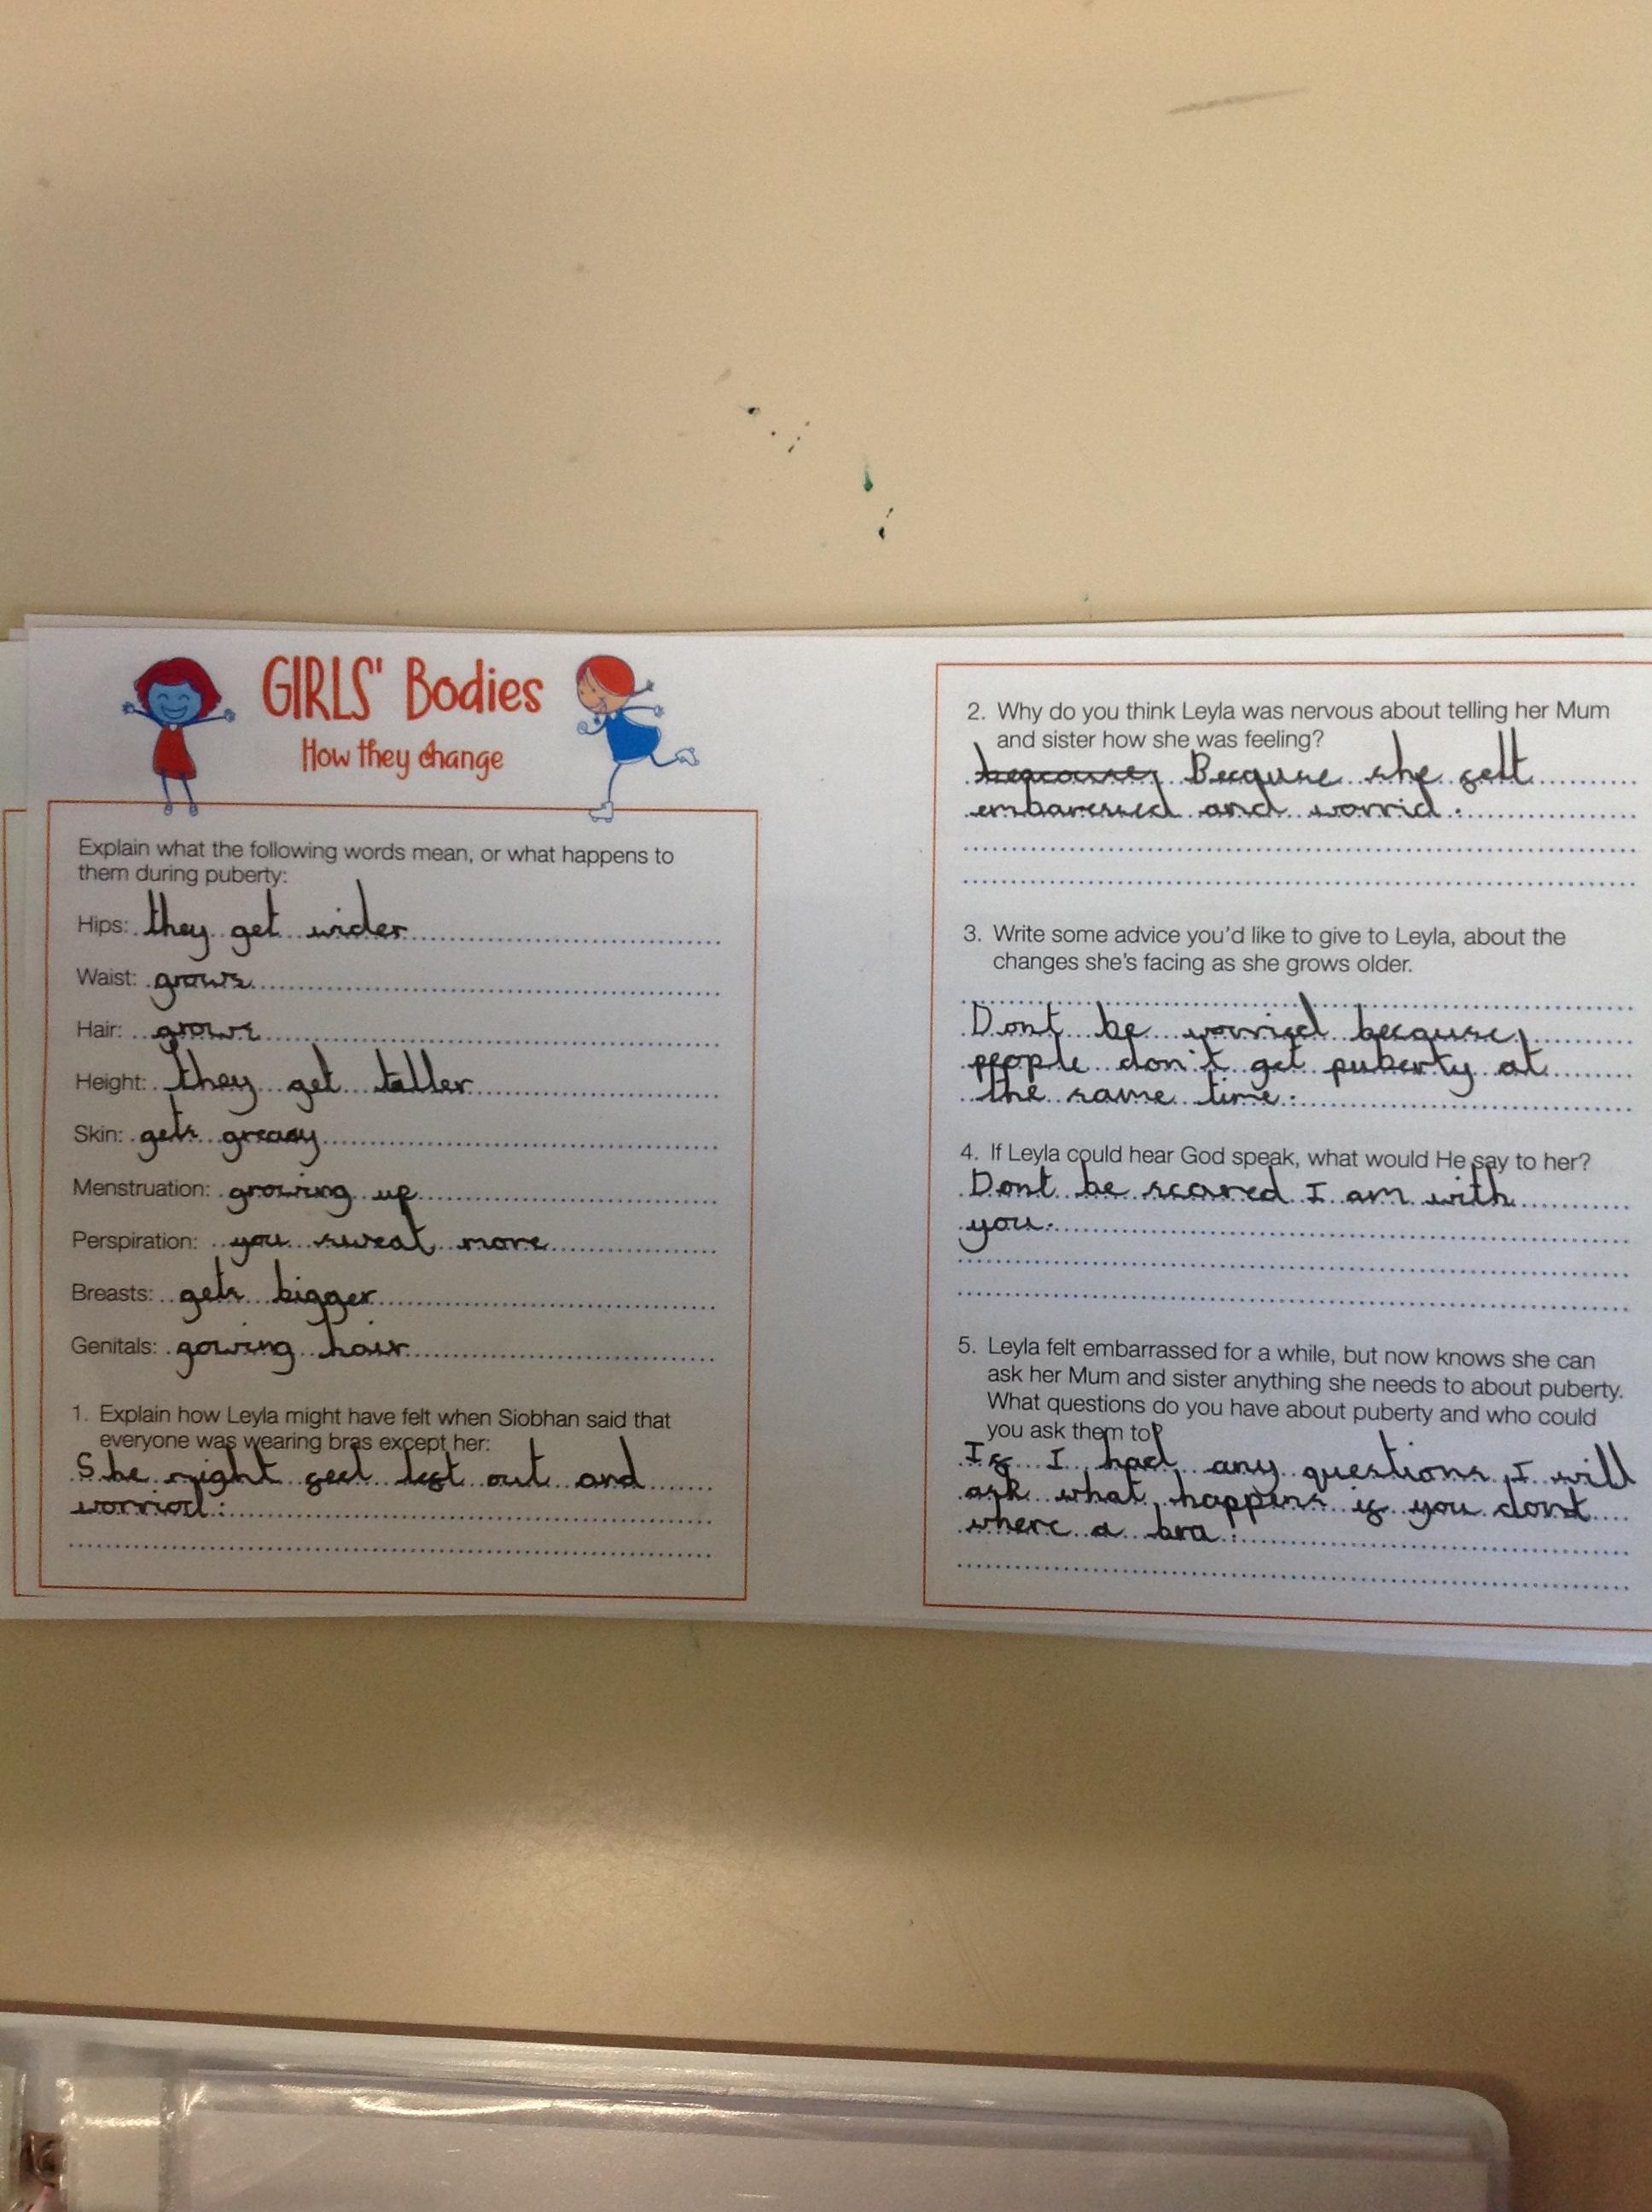 GIRLS' Bodies
How they change
Explain what the following words mean, or what happens to
them during puberty:
Hips: they get wider
Waist: grows
Hair: grows
Height: they get taller
Skin: gets greasy
Menstruation: growing up
Perspiration: you sweat more
Breasts: gets bigger
Genitals: gowing hair
1. Explain how Leyla might have felt when Siobhan said that
everyone was wearing bras except her:
She might feel left out and
worried.
2. Why do you think Leyla was nervous about telling her Mum
and sister how she was feeling?
Because she felt
embaressed and worrid.
3. Write some advice you'd like to give to Leyla, about the
changes she's facing as she grows older.
Dont be worried because
people don't get puberty at
the same time.
4. If Leyla could hear God speak, what would He say to her?
Dont be scared I am with
you.
5. Leyla felt embarrassed for a while, but now knows she can
ask her Mum and sister anything she needs to about puberty.
What questions do you have about puberty and who could
you ask them to?
If I had any questions I will
ask what happens if you dont
where a bra.